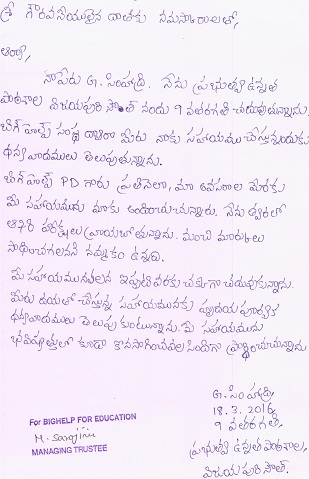 శ్రీ గౌరవనీయులైన దాతకు నమస్కారాలతో,
ఆర్యా,
నాపేరు G. సింహాద్రి. నేను ప్రభుత్వ ఉన్నత
పాఠశాల విజయపురి సౌత్ నందు 9 వతరగతి చదువుతున్నాను.
బిగ్ హెల్ప్ సంస్థ ద్వారా మీరు నాకు సహాయము చేస్తున్నందుకు
ధన్యవాదములు తెలుపుతున్నాను.
బిగ్ హెల్ప్ PD గారు ప్రతినెలా, మా అవసరాల మేరకు
మీ సహాయమును మాకు అందించుచున్నారు. నేను త్వరలో
ఆఖరి పరీక్షలు వ్రాయబోతున్నాను. మంచి మార్కులు
సాధించగలనని నమ్మకం ఉన్నది.
మీ సహాయమువలన ఇప్పటి వరకు చక్కగా చదువుకున్నాను.
మీరు దయతో చేస్తున్న సహాయమునకు హృదయపూర్వక
ధన్యవాదములు తెలుపు కుంటున్నాను. మీ సహాయమును
భవిష్యత్తులో కూడా కొనసాగించవలసిందిగా ప్రార్థించుచున్నాను
G. సింహాద్రి,
18.3.2016,
9 వతరగతి,
ప్రభుత్వ ఉన్నత పాఠశాల,
విజయపురి సౌత్.
For BIGHELP FOR EDUCATION
M. Sarojini
MANAGING TRUSTEE